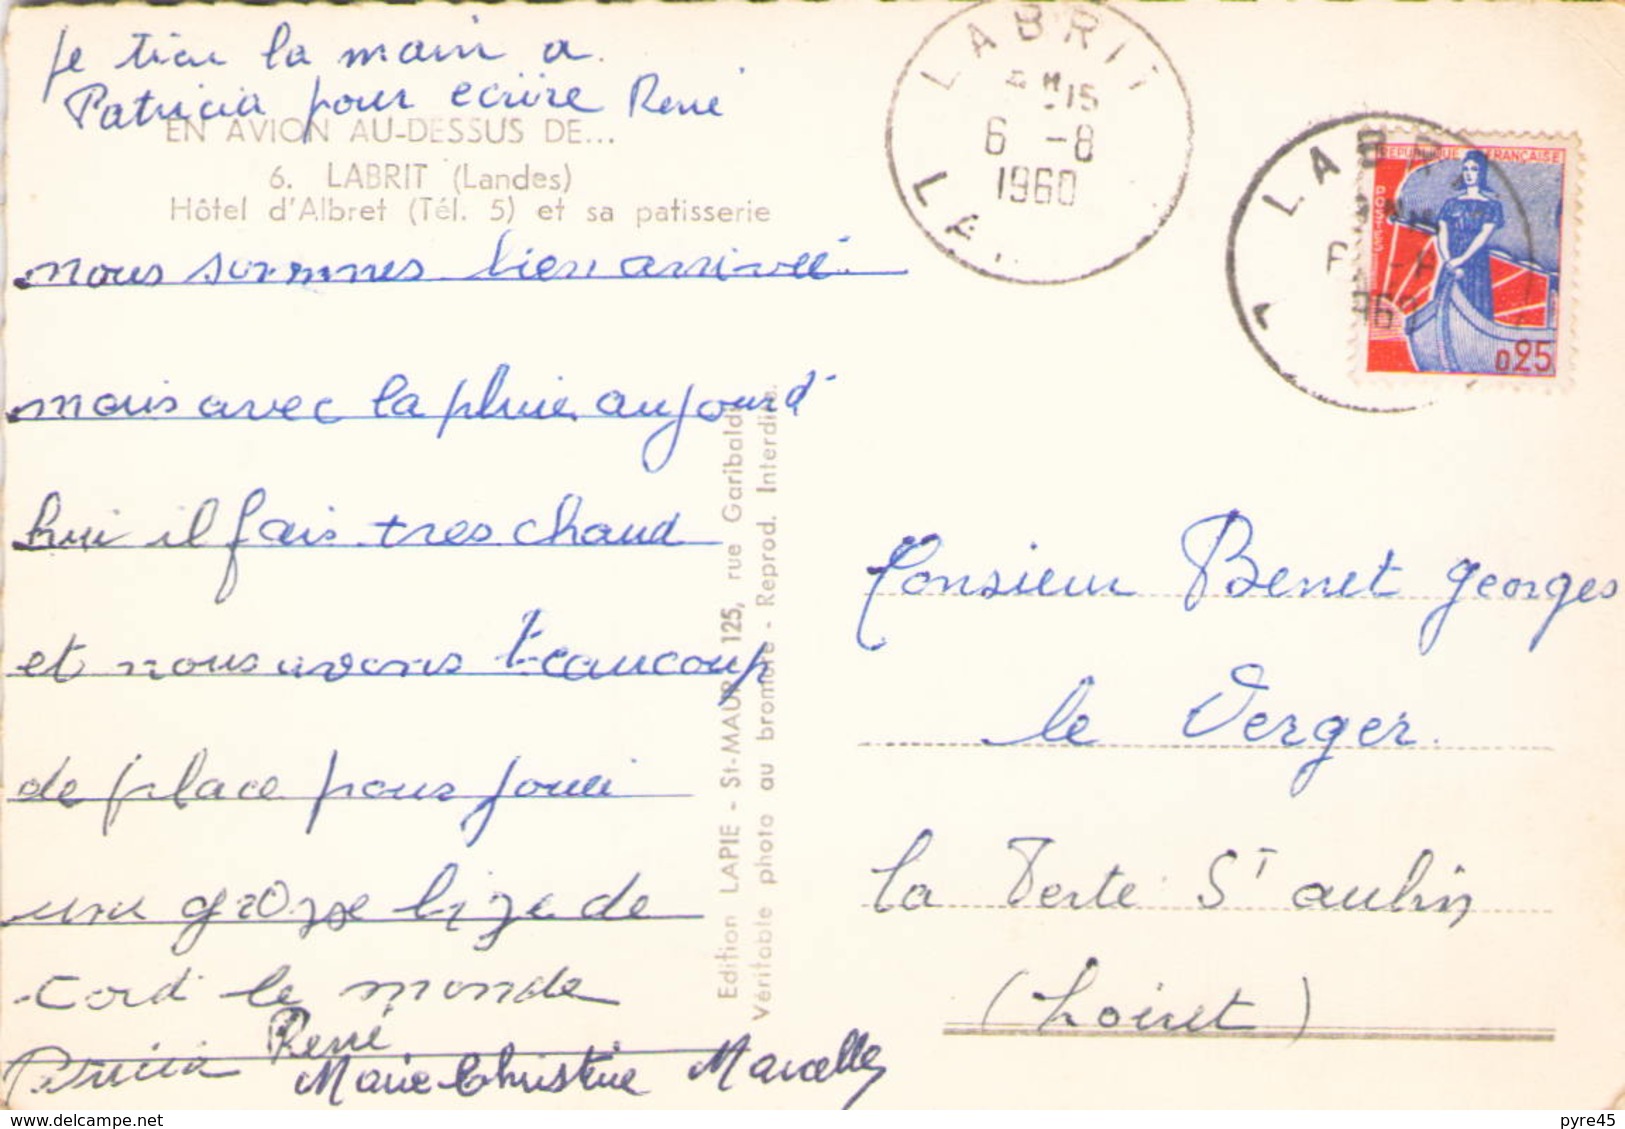 je tien la main a
Patricia pour ecrire René
EN AVION AU-DESSUS DE...
6. LABRIT (Landes)
Hôtel d'Albret (Tél. 5) et sa patisserie
nous sommes bien arrivée
mais avec la pluie aujourd'
hui il fais tres chaud
et nous avons beaucoup
de place pour joui
une grosse bize de
tout le monde
Patricia René
Marie Christine Marcelle
Edition LAPIE - St-MAUR 125, rue Garibaldi
Véritable photo au bromure - Reprod. Interdite.
LABRIT
15
6 -8
1960
LA
LABR
REPUBLIQUE FRANÇAISE
POSTES
0,25
Monsieur Benet georges
le Verger
la Ferte St aubin
(Loiret)
pyre45